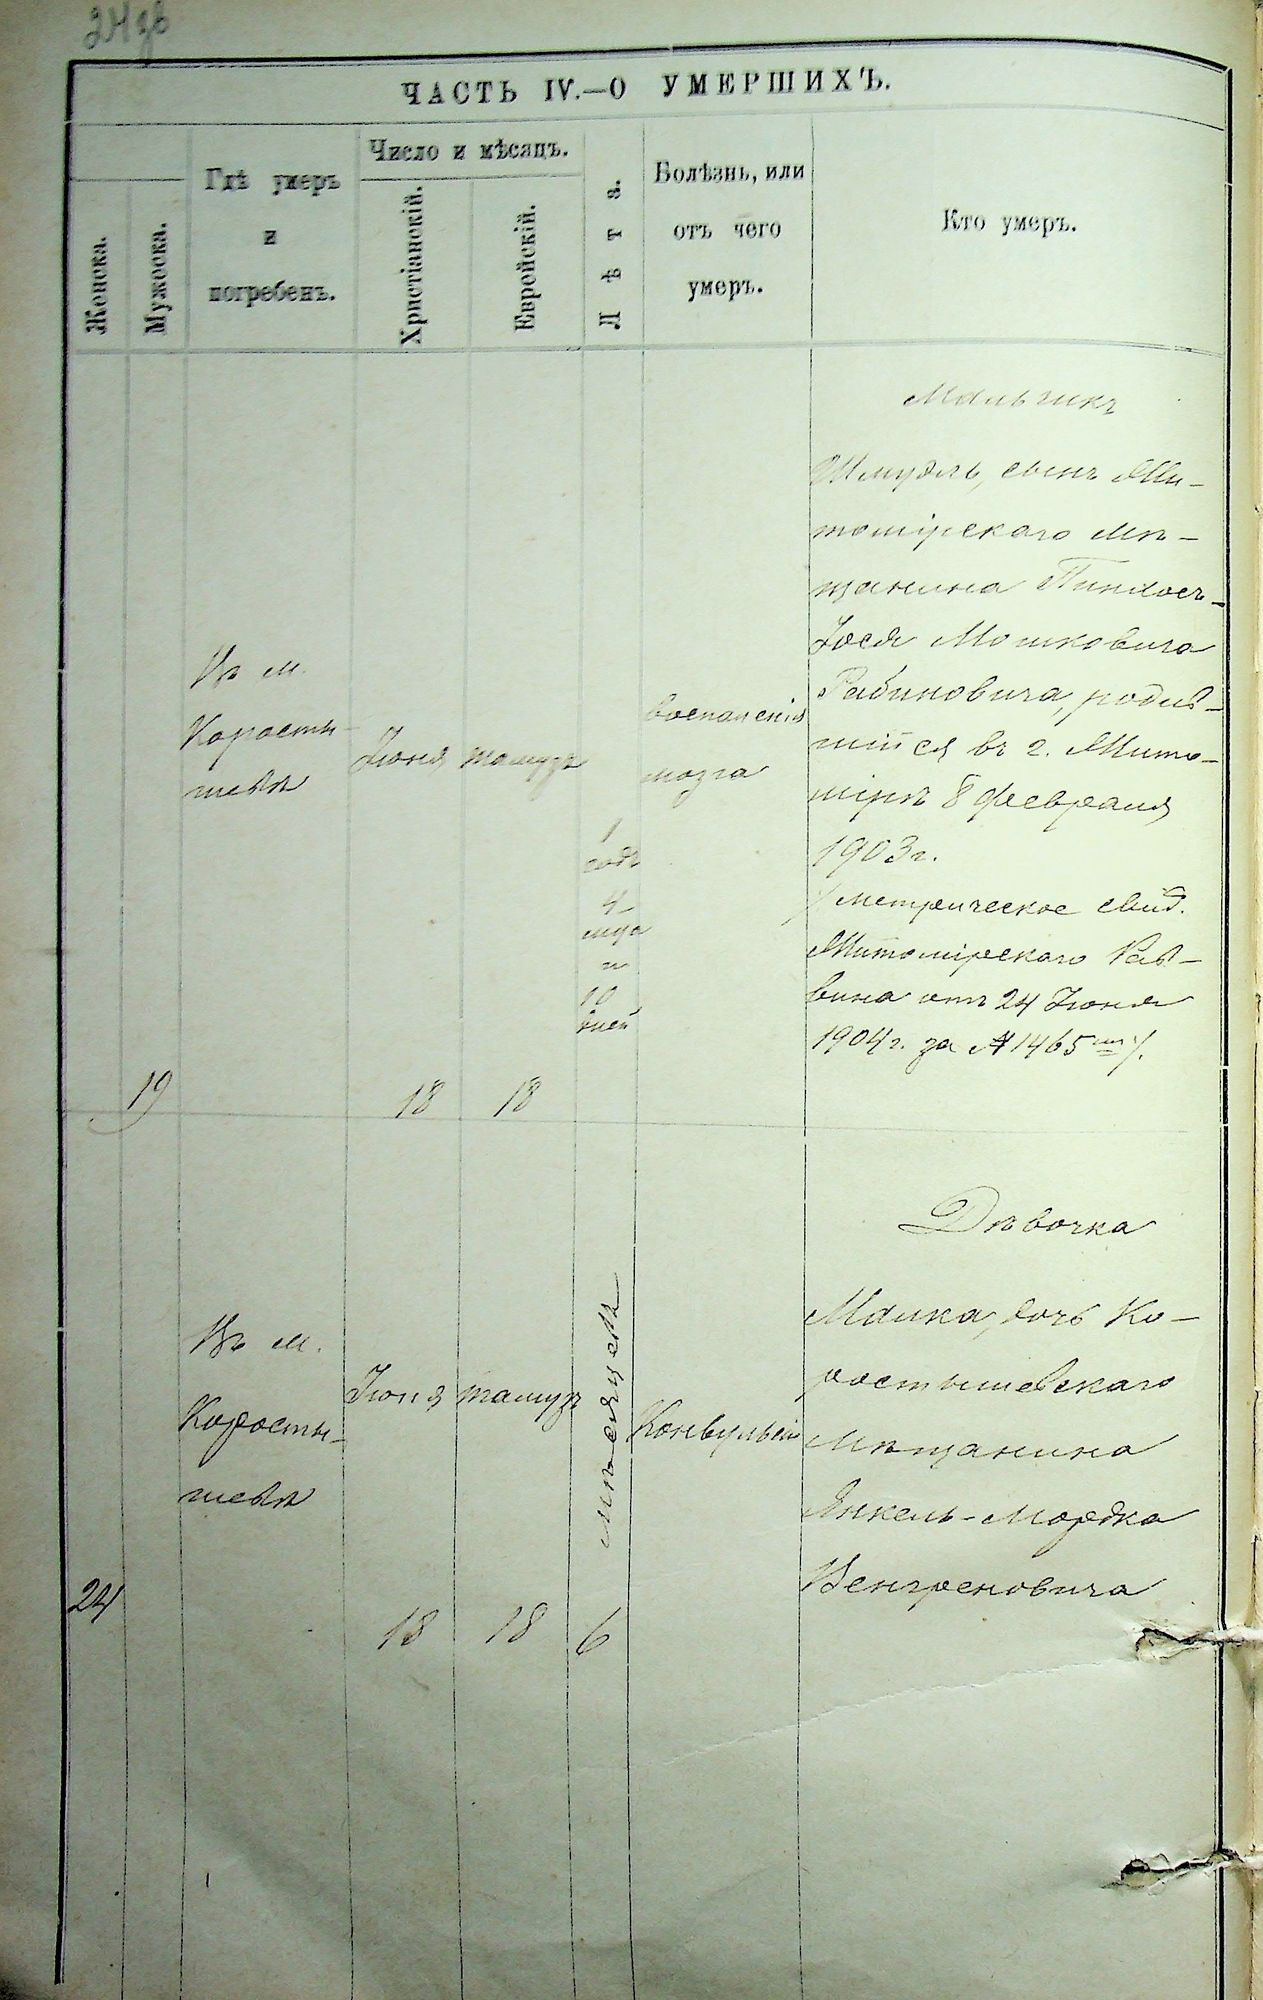 ЧАСТЬ IV.—О УМЕРШИХЪ.
Женска.
Мужеска.
Гдѣ умеръ
и
погребенъ.
Число и мѣсяцъ.
Христіанскій.
Еврейскій.
Лѣта.
Болѣзнь, или
отъ чего
умеръ.
Кто умеръ.
19
Въ м.
Коросты-
шевѣ
Іюня
18
тамузъ
18
1
годъ
4
мца
и
10
дней
воспаленія
мозга
Мальчикъ
Шмуэль, сынъ Жи-
томірскаго мѣ-
щанина Пинхосъ-
Іося Мошковича
Рабиновича, родив-
шійся въ г. Жито-
мірѣ 8 февраля
1903 г.
/метрическое свид.
Житомірскаго Рав-
вина отъ 24 Іюня
1904 г. за № 1465 /.
24
Въ м.
Коросты-
шевѣ
Іюня
18
тамузъ
18
6
мѣсяцевъ
Конвульсіи
Дѣвочка
Малка, дочь Ко-
ростышевскаго
мѣщанина
Янкель-Мордка
Венгреновича